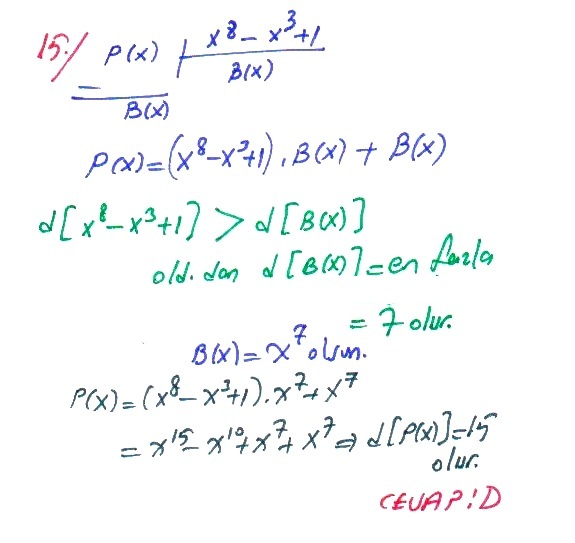 15-/ P(x) | x⁸ - x³+1
B(x)
B(x)
P(x)=(x⁸-x³+1).B(x)+B(x)
d[x⁸-x³+1] > d[B(x)]
old.dan d[B(x)]=en fazla
= 7 olur.
B(x)= x⁷ olsun.
P(x)=(x⁸-x³+1).x⁷+x⁷
= x¹⁵-x¹⁰+x⁷+x⁷ ⇒ d[P(x)]=15
olur.
CEVAP:D